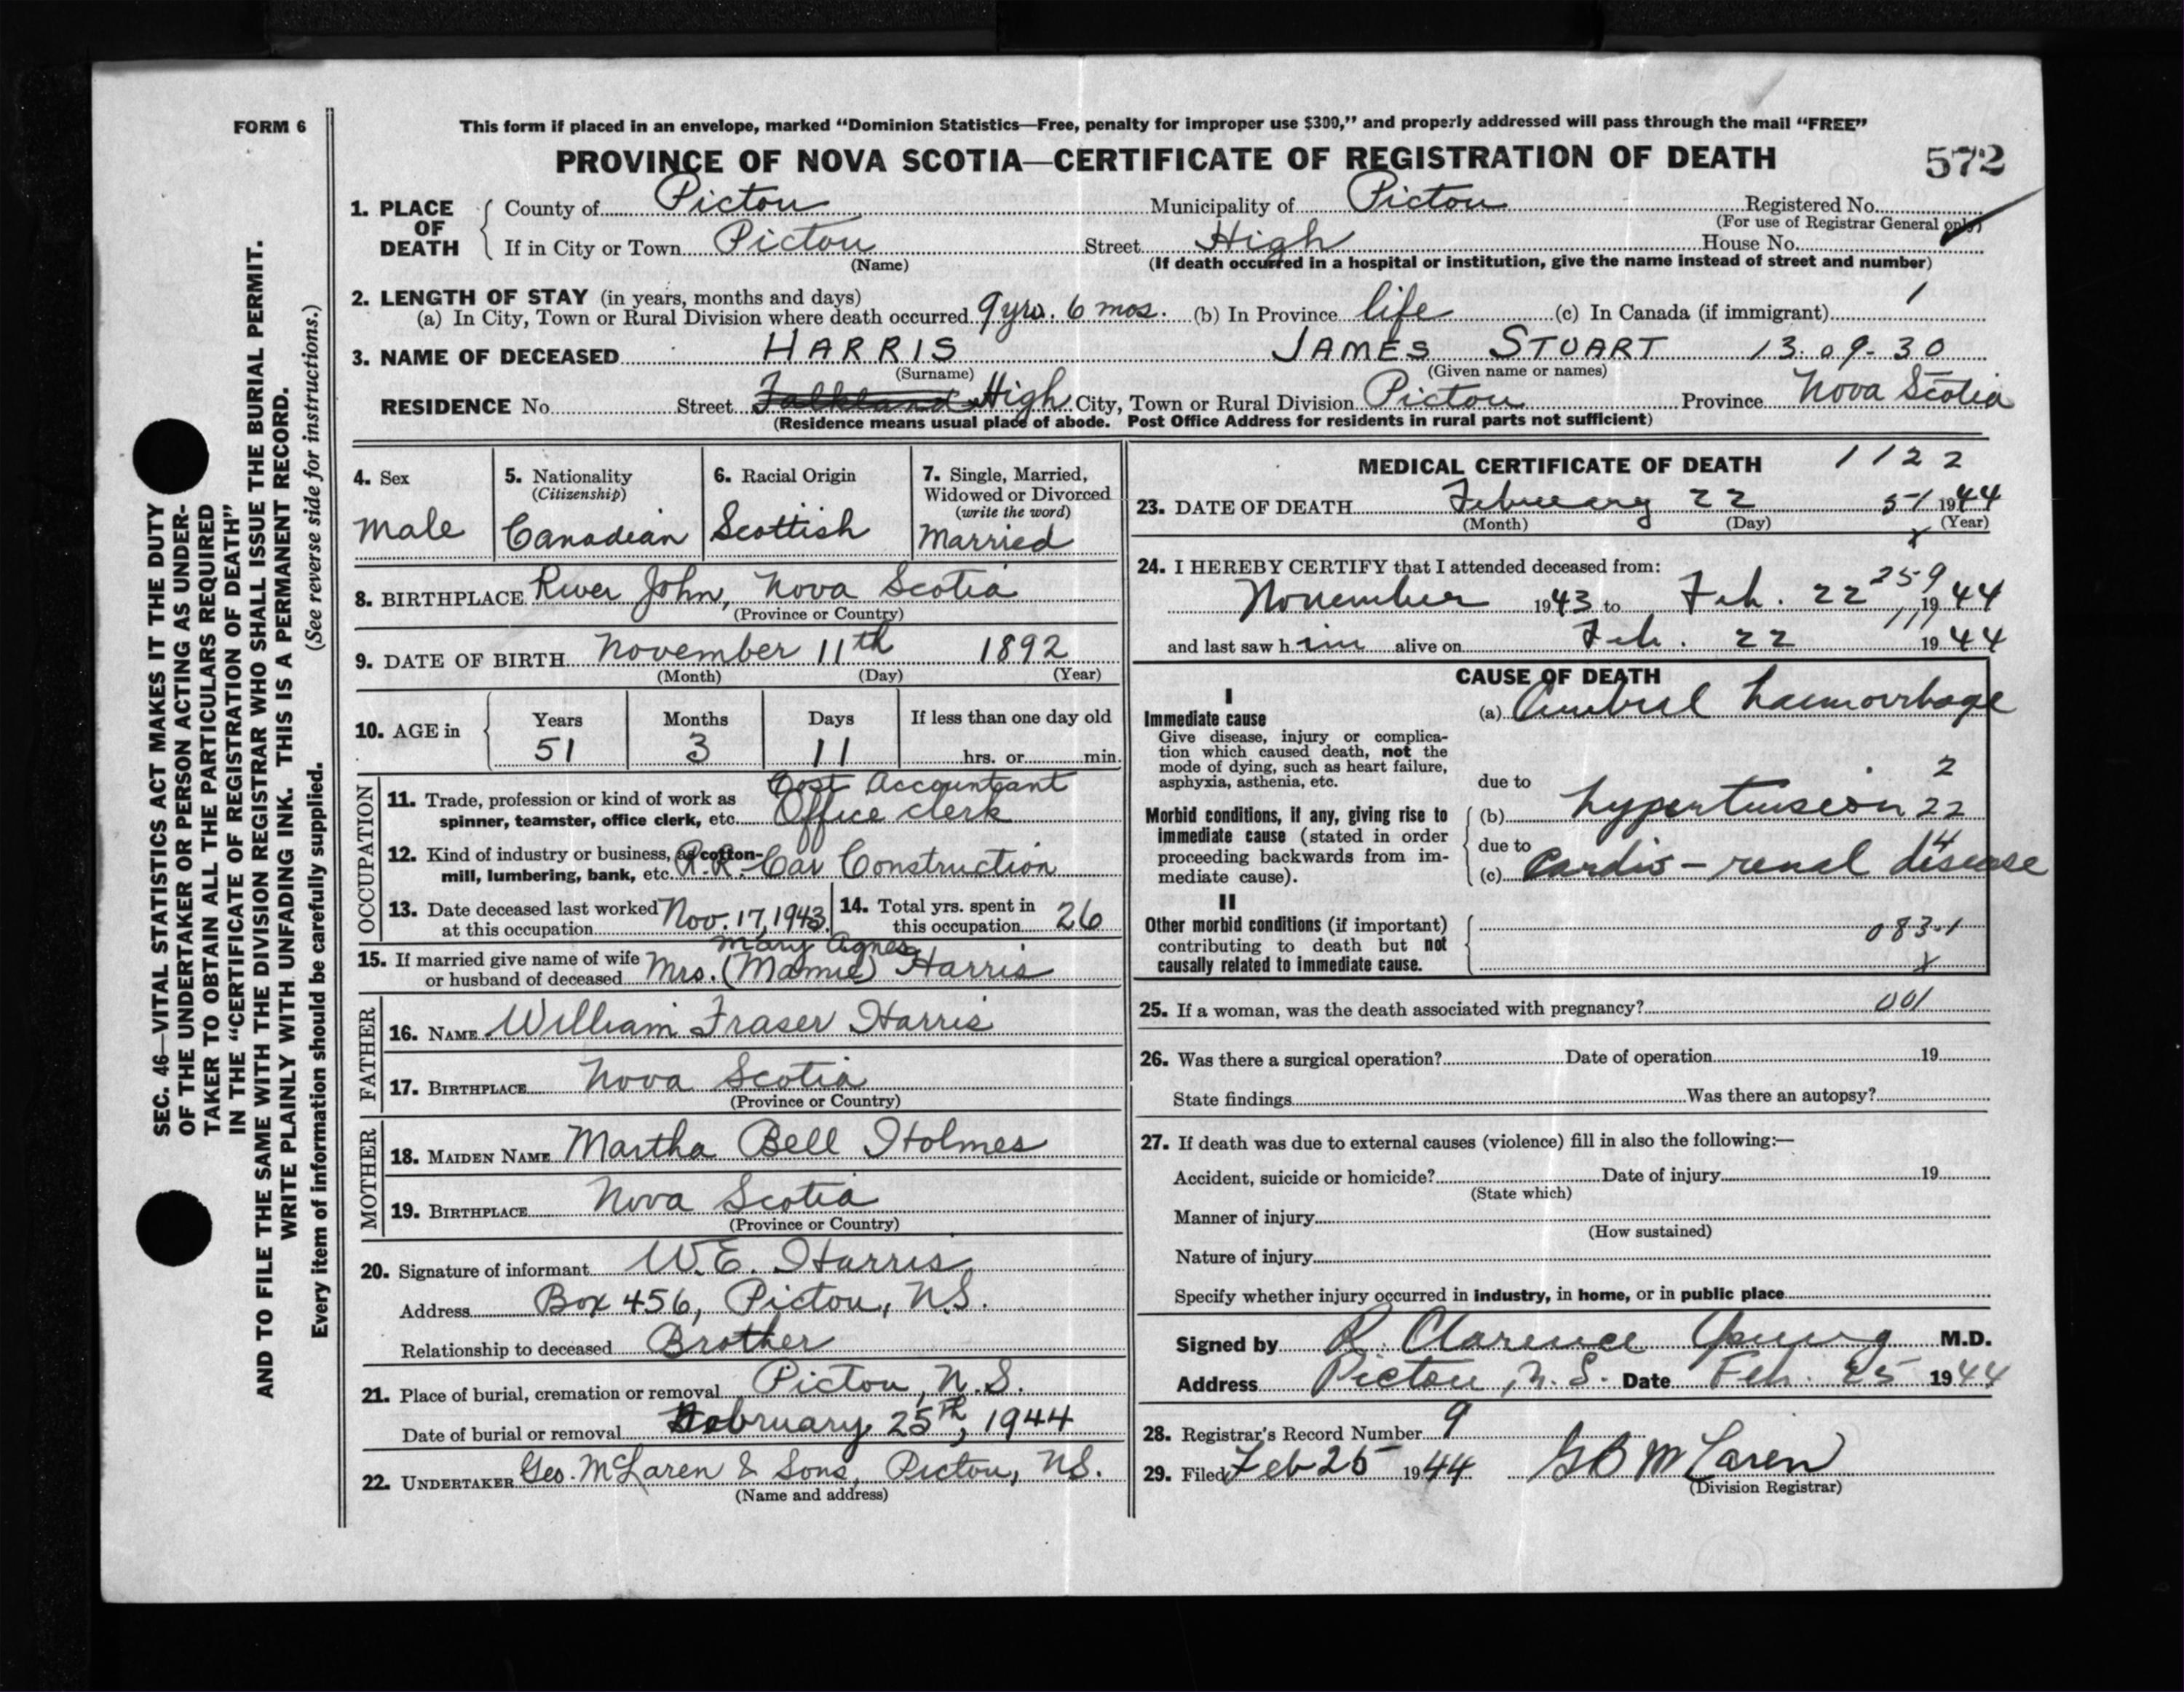 FORM 6
This form if placed in an envelope, marked “Dominion Statistics—Free, penalty for improper use $300,” and properly addressed will pass through the mail “FREE”
PROVINCE OF NOVA SCOTIA—CERTIFICATE OF REGISTRATION OF DEATH
572
SEC. 46—VITAL STATISTICS ACT MAKES IT THE DUTY
OF THE UNDERTAKER OR PERSON ACTING AS UNDER-
TAKER TO OBTAIN ALL THE PARTICULARS REQUIRED
IN THE “CERTIFICATE OF REGISTRATION OF DEATH”
AND TO FILE THE SAME WITH THE DIVISION REGISTRAR WHO SHALL ISSUE THE BURIAL PERMIT.
WRITE PLAINLY WITH UNFADING INK. THIS IS A PERMANENT RECORD.
Every item of information should be carefully supplied. (See reverse side for instructions.)
1. PLACE OF DEATH
County of Pictou Municipality of Pictou Registered No.
(For use of Registrar General only)
If in City or Town Pictou Street High House No.
(Name) (If death occurred in a hospital or institution, give the name instead of street and number)
2. LENGTH OF STAY (in years, months and days)
(a) In City, Town or Rural Division where death occurred 9 yrs. 6 mos. (b) In Province life (c) In Canada (if immigrant) 1
3. NAME OF DECEASED HARRIS JAMES STUART 13.09.30
(Surname) (Given name or names)
RESIDENCE No. Street Falkland High City, Town or Rural Division Pictou Province Nova Scotia
(Residence means usual place of abode. Post Office Address for residents in rural parts not sufficient)
4. Sex
Male
5. Nationality
(Citizenship)
Canadian
6. Racial Origin
Scottish
7. Single, Married,
Widowed or Divorced
(write the word)
Married
8. BIRTHPLACE River John, Nova Scotia
(Province or Country)
9. DATE OF BIRTH November 11th 1892
(Month) (Day) (Year)
10. AGE in
Years Months Days If less than one day old
51 3 11 hrs. or min.
OCCUPATION
Cost Accountant
11. Trade, profession or kind of work as
spinner, teamster, office clerk, etc. Office clerk
12. Kind of industry or business, as cotton-
mill, lumbering, bank, etc. R.R. Car Construction
13. Date deceased last worked
at this occupation Nov. 17, 1943
14. Total yrs. spent in
this occupation 26
Mary Agnes
15. If married give name of wife
or husband of deceased Mrs. (Mamie) Harris
FATHER
16. NAME William Fraser Harris
17. BIRTHPLACE Nova Scotia
(Province or Country)
MOTHER
18. MAIDEN NAME Martha Bell Holmes
19. BIRTHPLACE Nova Scotia
(Province or Country)
20. Signature of informant W.E. Harris
Address Box 456, Pictou, N.S.
Relationship to deceased Brother
21. Place of burial, cremation or removal Pictou, N.S.
Date of burial or removal February 25th, 1944
22. UNDERTAKER Geo. McLaren & Sons, Pictou, N.S.
(Name and address)
MEDICAL CERTIFICATE OF DEATH 1122
23. DATE OF DEATH February 22 51 1944
(Month) (Day) (Year)
x
24. I HEREBY CERTIFY that I attended deceased from:
259
November 1943 to Feb. 22 1944
111
and last saw him alive on Feb. 22 1944
CAUSE OF DEATH
I
Immediate cause
Give disease, injury or complica-
tion which caused death, not the
mode of dying, such as heart failure,
asphyxia, asthenia, etc.
(a) Cerebral haemorrhage
due to 2
Morbid conditions, if any, giving rise to
immediate cause (stated in order
proceeding backwards from im-
mediate cause).
(b) hypertension 22
due to 4
(c) Cardio-renal disease
II
Other morbid conditions (if important)
contributing to death but not
causally related to immediate cause.
083.1
x
25. If a woman, was the death associated with pregnancy? 001
26. Was there a surgical operation? Date of operation 19
State findings Was there an autopsy?
27. If death was due to external causes (violence) fill in also the following:—
Accident, suicide or homicide? Date of injury 19
(State which)
Manner of injury
(How sustained)
Nature of injury
Specify whether injury occurred in industry, in home, or in public place
Signed by R. Clarence Young M.D.
Address Pictou, N.S. Date Feb. 25 1944
28. Registrar's Record Number 9
29. Filed Feb 25 1944 G B McLaren
(Division Registrar)